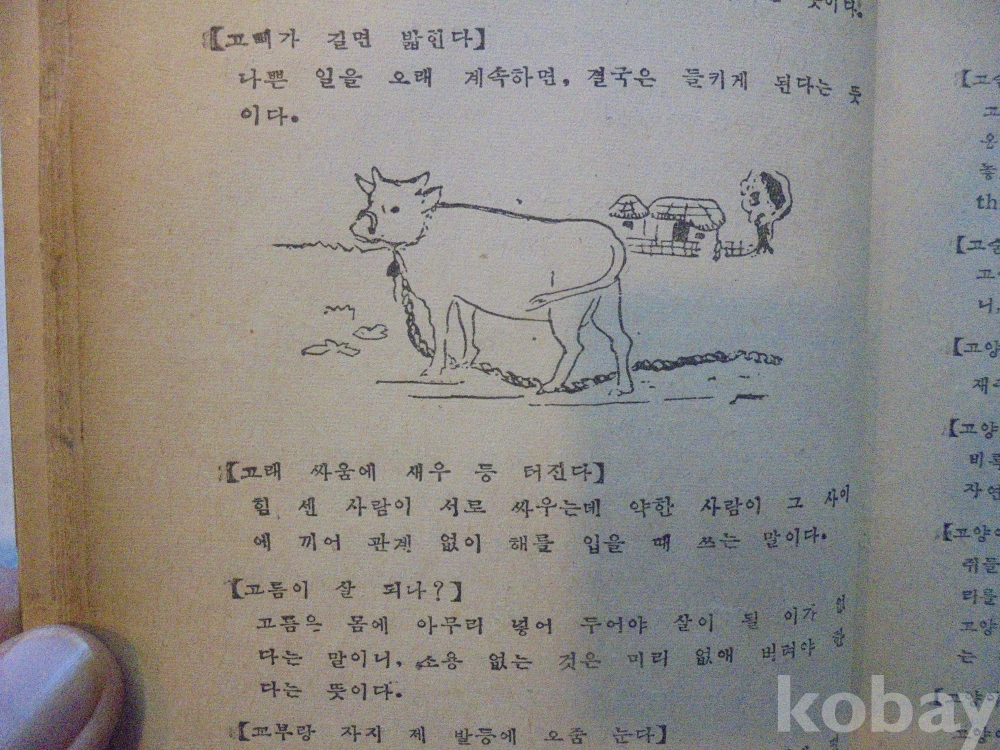 뜻이다.
【고삐가 길면 밟힌다】
나쁜 일을 오래 계속하면, 결국은 들키게 된다는 뜻
이다.
【고래 싸움에 새우 등 터진다】
힘 센 사람이 서로 싸우는데 약한 사람이 그 사이
에 끼어 관계 없이 해를 입을 때 쓰는 말이다.
【고름이 살 되나?】
고름은 몸에 아무리 넣어 두어야 살이 될 이가 없
다는 말이니, 소용 없는 것은 미리 없애 버려야 한
다는 뜻이다.
【고부랑 자지 제 발등에 오줌 눈다】
놓
th
니,
【고양
【고양
비록
자연
【고양이
쥐를
고양
는
kobay